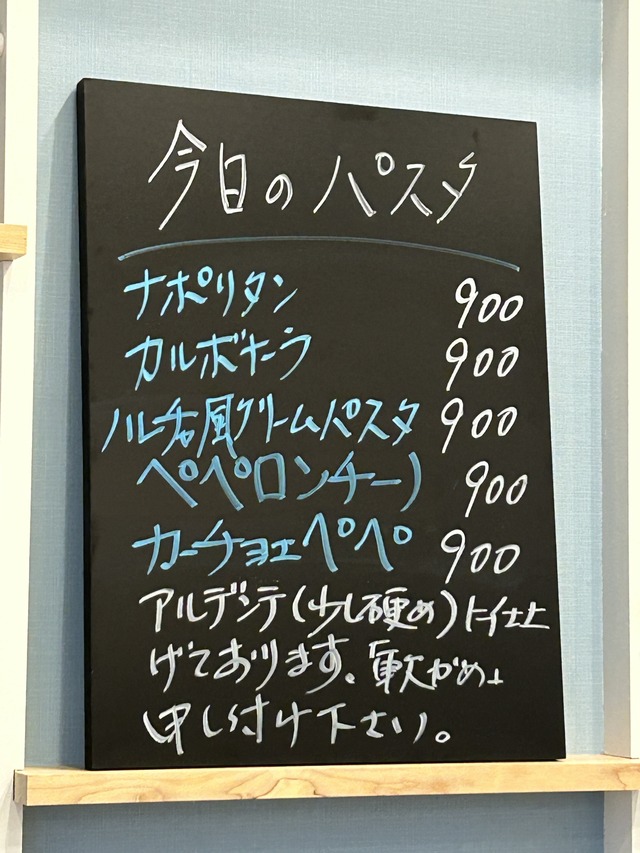 今日のパスタ
ナポリタン 900
カルボナーラ 900
ハルチャ風クリームパスタ 900
ペペロンチーノ 900
カーチョエペペ 900
アルデンテ(少し硬め)に仕上
げております。「軟かめ」
申し付け下さい。